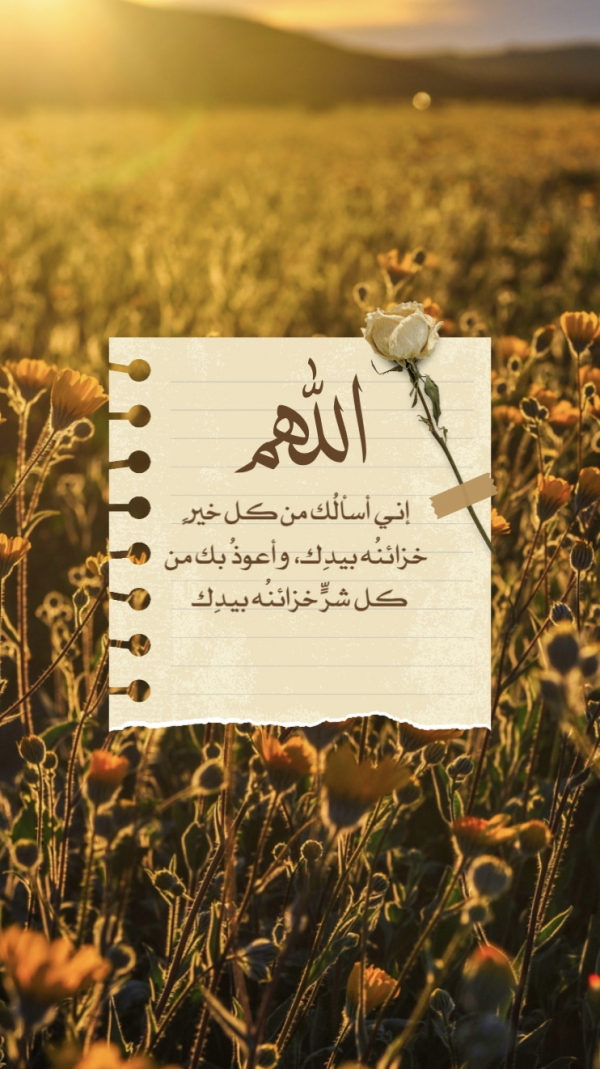 اللهم
إني أسألُك من كل خيرٍ
خزائنُه بيدِك، وأعوذُ بك من
كل شرٍّ خزائنُه بيدِك